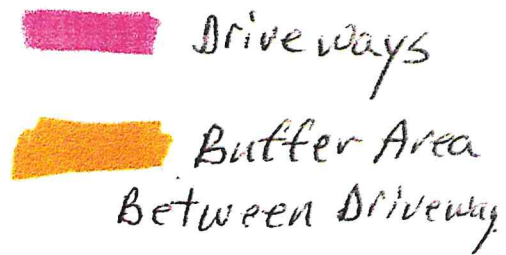 Driveways
Buffer Area
Between Driveway